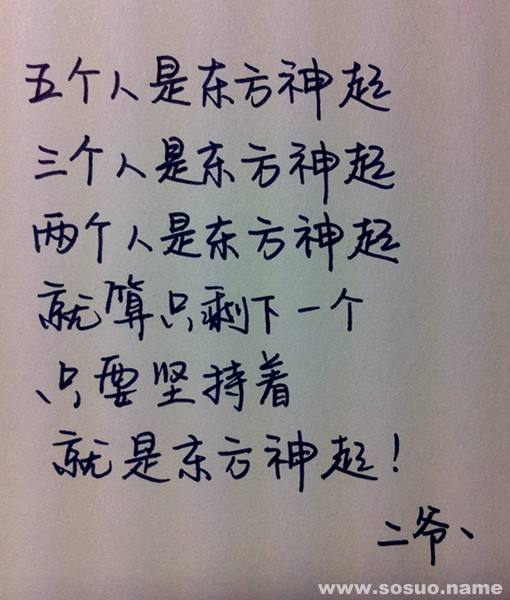 五个人是东方神起
三个人是东方神起
两个人是东方神起
就算只剩下一个
只要坚持着
就是东方神起！
二爷、
www.sosuo.name